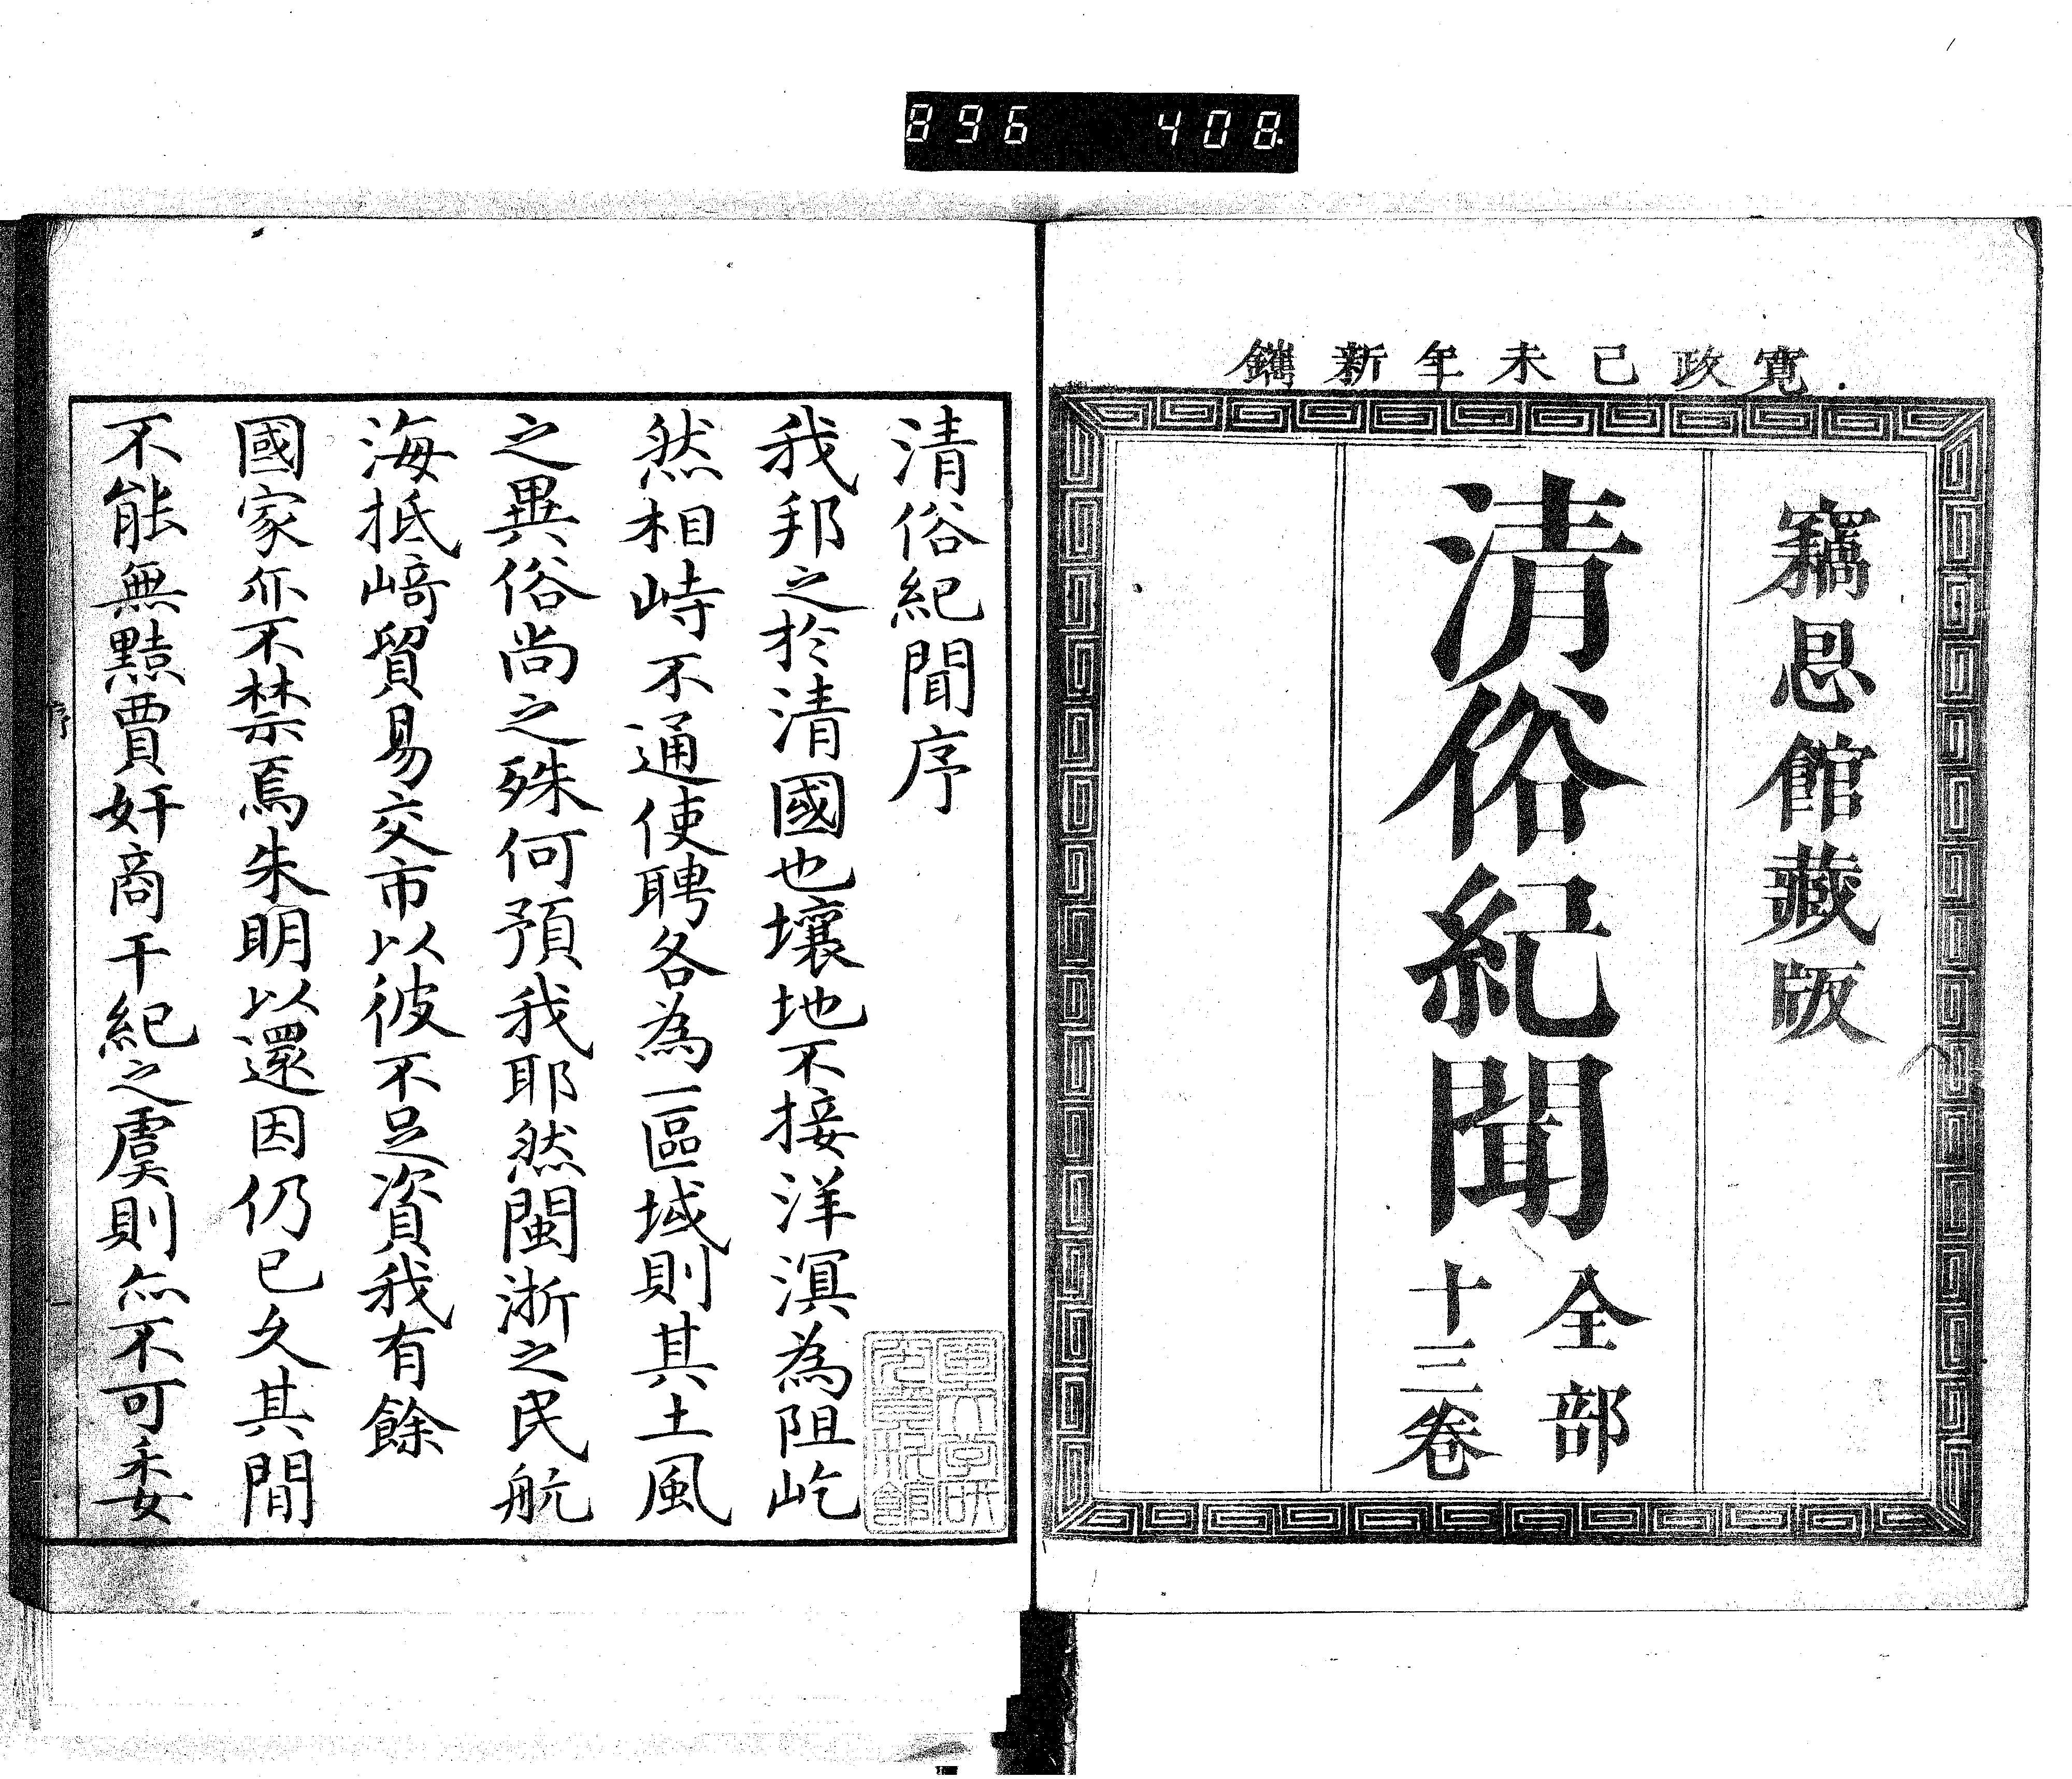 896 408
寛政己未年新鐫
竊恩館藏版
清俗紀聞
全部
十三卷
清俗紀聞序
我邦之於清國也壤地不接洋溟為阻屹
然相峙不通使聘各為一區域則其土風
之異俗尚之殊何預我耶然閩浙之民航
海抵﨑貿易交市以彼不足資我有餘
國家亦不禁焉朱明以還因仍已久其間
不能無黠賈奸商干紀之虞則亦不可委
序
一